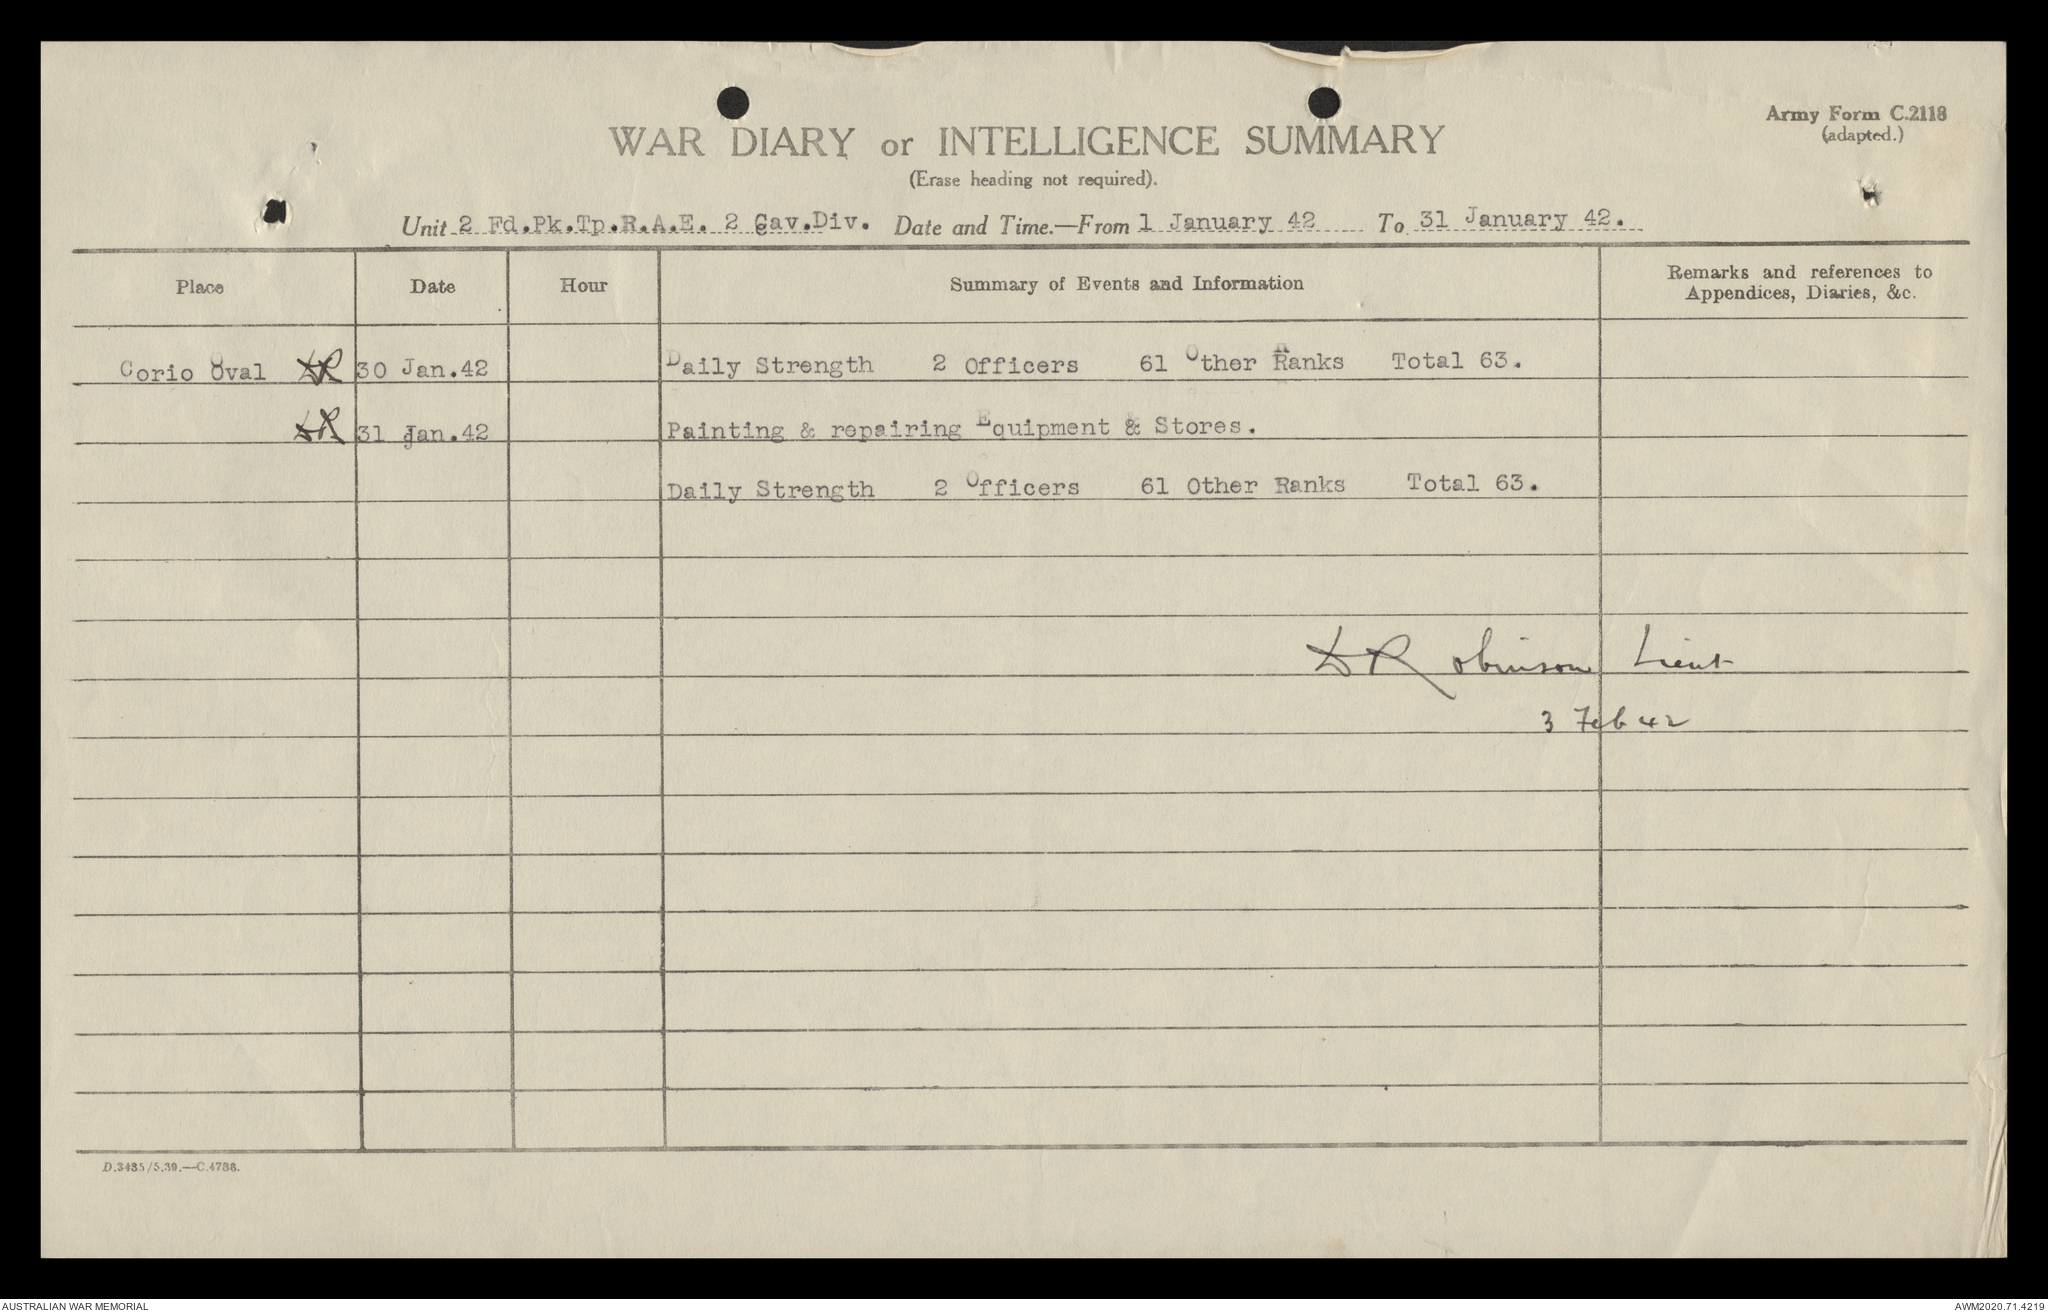 Army Form C.2118
(adapted.)
WAR DIARY or INTELLIGENCE SUMMARY
(Erase heading not required).
Unit 2 Fd.Pk.Tp.R.A.E. 2 Cav.Div. Date and Time.—From 1 January 42 To 31 January 42.
Place Date Hour Summary of Events and Information Remarks and references to
Appendices, Diaries, &c.
Corio Oval DR 30 Jan.42 Daily Strength 2 Officers 61 Other Ranks Total 63.
DR 31 Jan.42 Painting & repairing Equipment & Stores.
Daily Strength 2 Officers 61 Other Ranks Total 63.
DRobinson Lieut
3 Feb 42
D.3485/5.39.—C.4738.
AUSTRALIAN WAR MEMORIAL AWM2020.71.4219